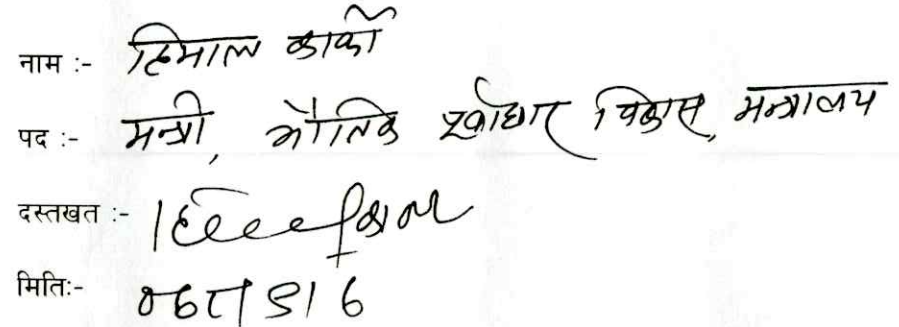 नाम :- हिमाल कार्की
पद :- मन्त्री, भौतिक पूर्वाधार विकास, मन्त्रालय
दस्तखत :-
मितिः-